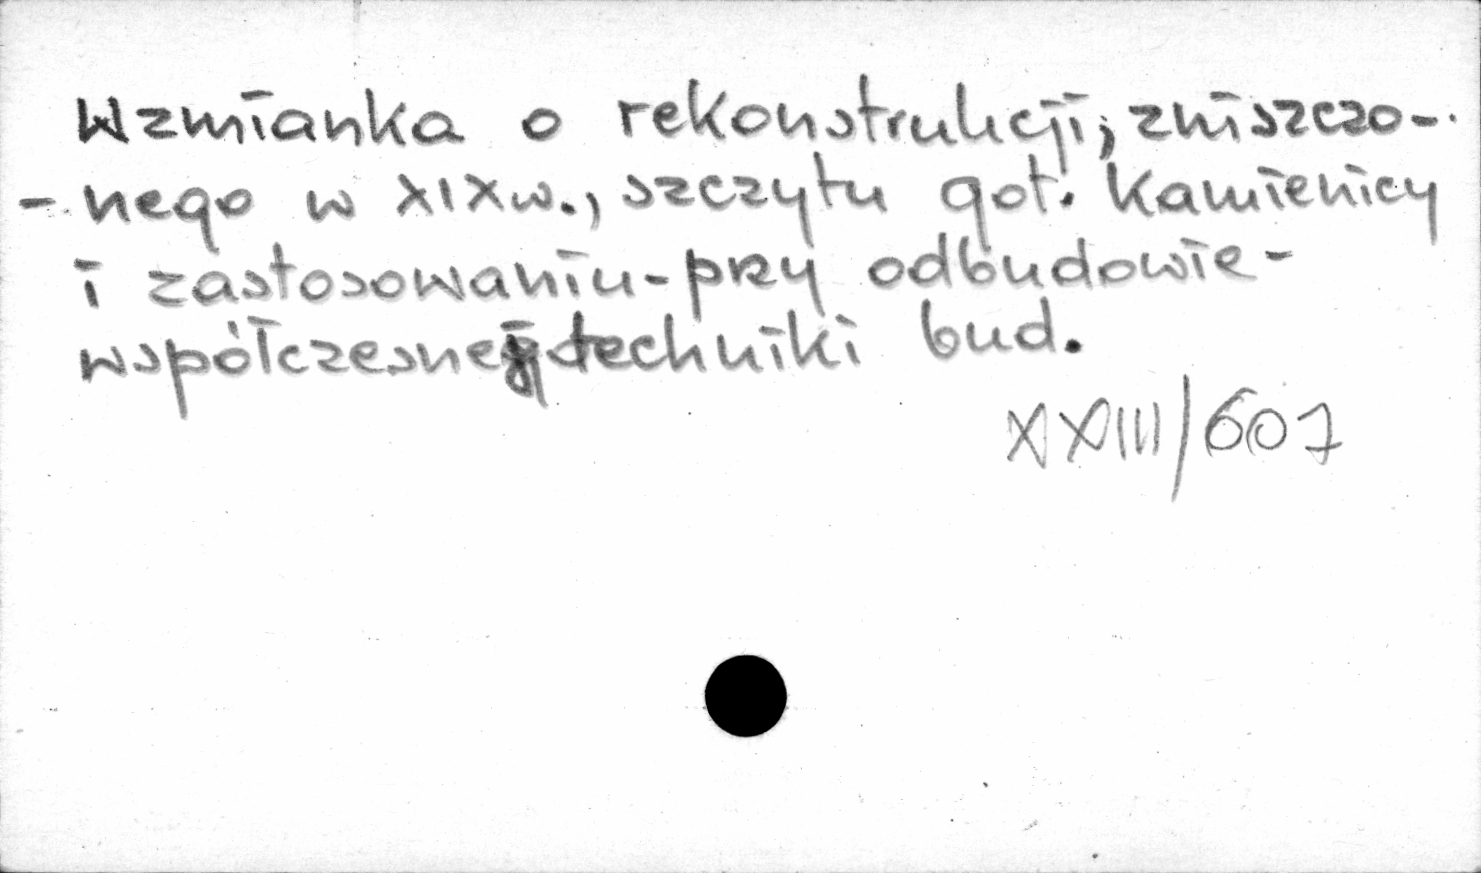 Wzmianka o rekonstrukcji, zniszczo-
-nego w XIX w., szczytu got. kamienicy
i zastosowaniu - przy odbudowie -
współczesnej techniki bud.
XXIII/601